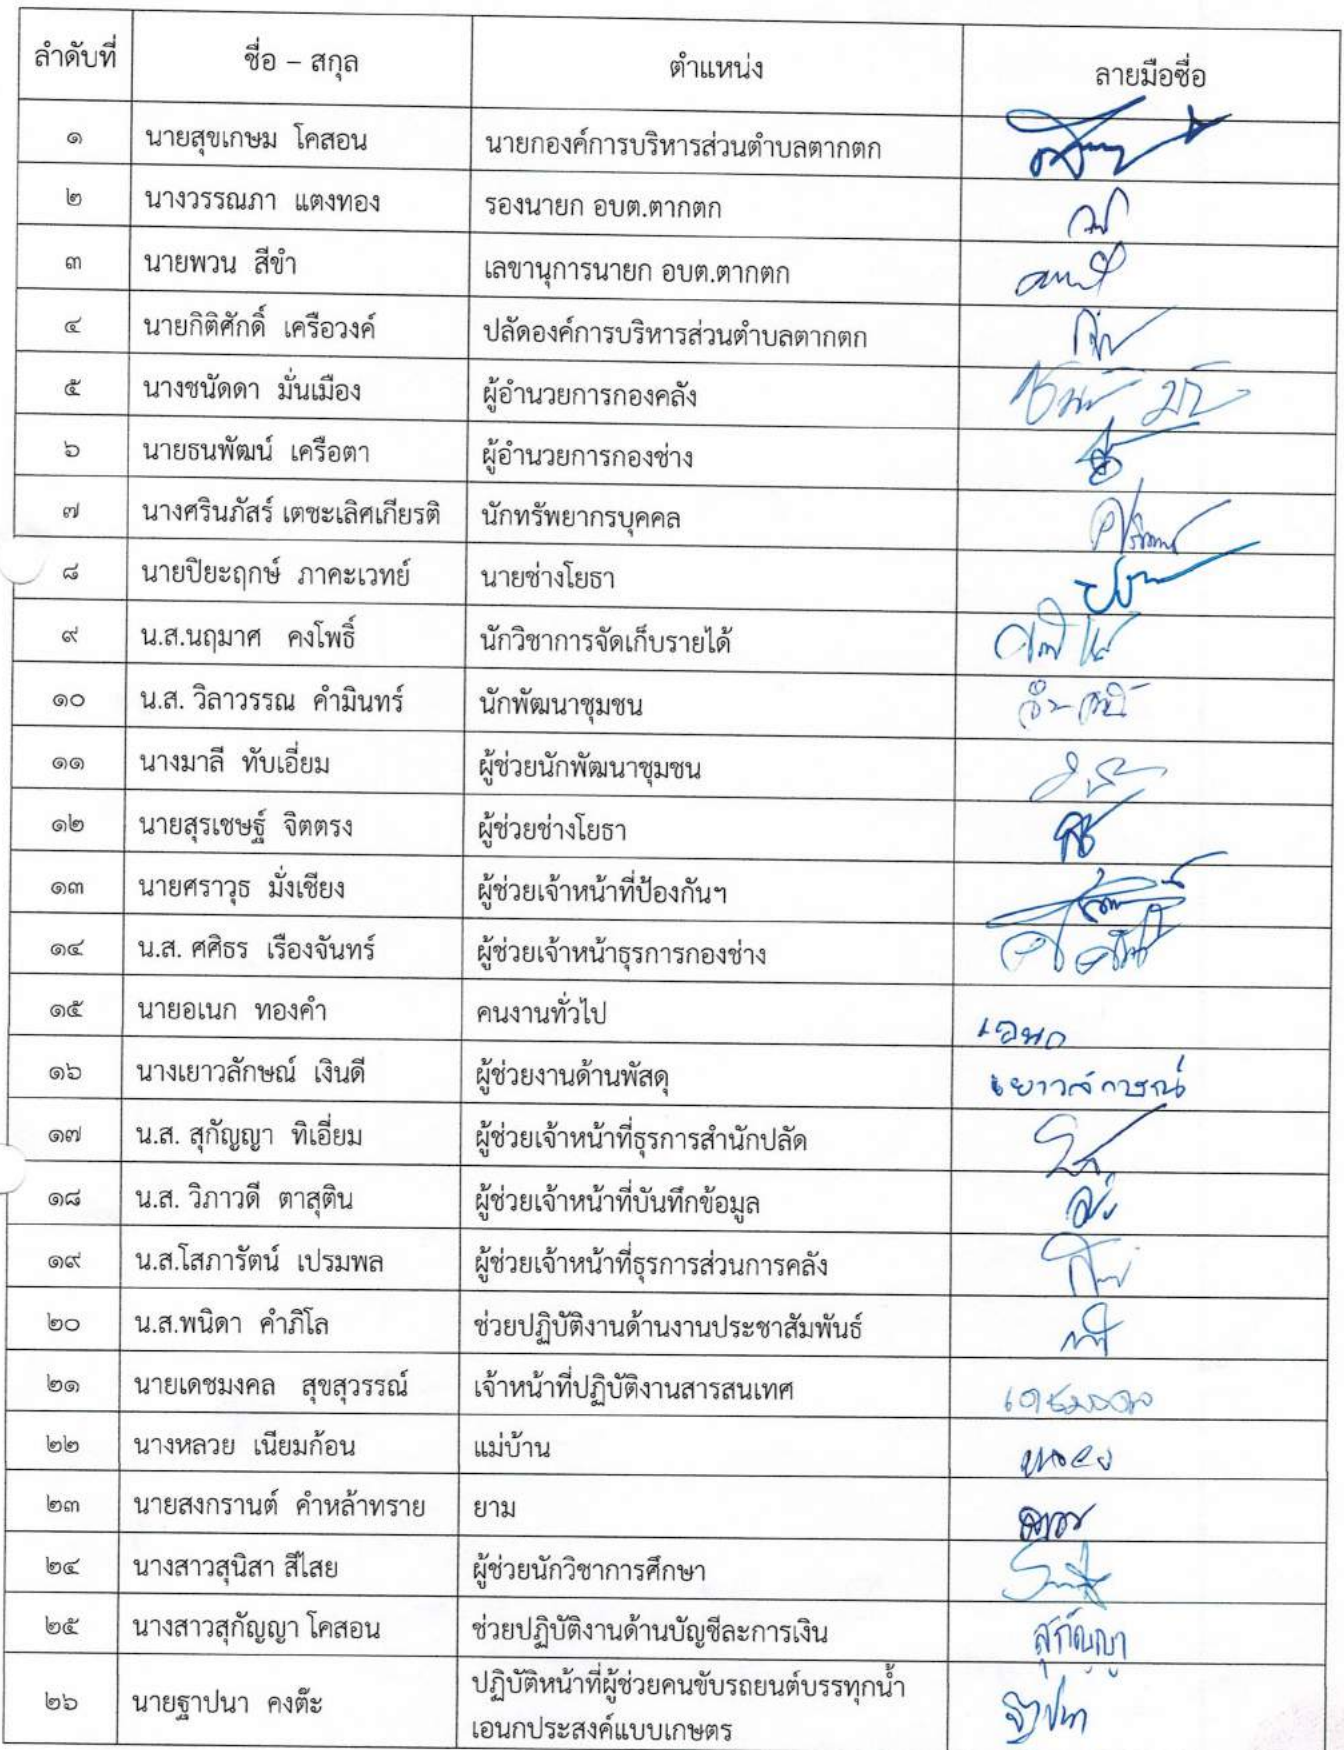 ลำดับที่ ชื่อ – สกุล ตำแหน่ง ลายมือชื่อ
๑ นายสุขเกษม โคสอน นายกองค์การบริหารส่วนตำบลตากตก
๒ นางวรรณภา แตงทอง รองนายก อบต.ตากตก
๓ นายพวน สีขำ เลขานุการนายก อบต.ตากตก
๔ นายกิติศักดิ์ เครือวงค์ ปลัดองค์การบริหารส่วนตำบลตากตก
๕ นางชนัดดา มั่นเมือง ผู้อำนวยการกองคลัง
๖ นายธนพัฒน์ เครือตา ผู้อำนวยการกองช่าง
๗ นางศรินภัสร์ เตชะเลิศเกียรติ นักทรัพยากรบุคคล
๘ นายปิยะฤกษ์ ภาคะเวทย์ นายช่างโยธา
๙ น.ส.นฤมาศ คงโพธิ์ นักวิชาการจัดเก็บรายได้
๑๐ น.ส. วิลาวรรณ คำมินทร์ นักพัฒนาชุมชน
๑๑ นางมาลี ทับเอี่ยม ผู้ช่วยนักพัฒนาชุมชน
๑๒ นายสุรเชษฐ์ จิตตรง ผู้ช่วยช่างโยธา
๑๓ นายศราวุธ มั่งเชียง ผู้ช่วยเจ้าหน้าที่ป้องกันฯ
๑๔ น.ส. ศศิธร เรืองจันทร์ ผู้ช่วยเจ้าหน้าธุรการกองช่าง
๑๕ นายอเนก ทองคำ คนงานทั่วไป เอนก
๑๖ นางเยาวลักษณ์ เงินดี ผู้ช่วยงานด้านพัสดุ เยาวลักษณ์
๑๗ น.ส. สุกัญญา ทิเอี่ยม ผู้ช่วยเจ้าหน้าที่ธุรการสำนักปลัด
๑๘ น.ส. วิภาวดี ตาสุติน ผู้ช่วยเจ้าหน้าที่บันทึกข้อมูล
๑๙ น.ส.โสภารัตน์ เปรมพล ผู้ช่วยเจ้าหน้าที่ธุรการส่วนการคลัง
๒๐ น.ส.พนิดา คำภิโล ช่วยปฏิบัติงานด้านงานประชาสัมพันธ์
๒๑ นายเดชมงคล สุขสุวรรณ์ เจ้าหน้าที่ปฏิบัติงานสารสนเทศ เดชมงคล
๒๒ นางหลวย เนียมก้อน แม่บ้าน หลวย
๒๓ นายสงกรานต์ คำหล้าทราย ยาม
๒๔ นางสาวสุนิสา สีไสย ผู้ช่วยนักวิชาการศึกษา
๒๕ นางสาวสุกัญญา โคสอน ช่วยปฏิบัติงานด้านบัญชีละการเงิน สุกัญญา
๒๖ นายฐาปนา คงต๊ะ ปฏิบัติหน้าที่ผู้ช่วยคนขับรถยนต์บรรทุกน้ำ ฐาปนา
เอนกประสงค์แบบเกษตร